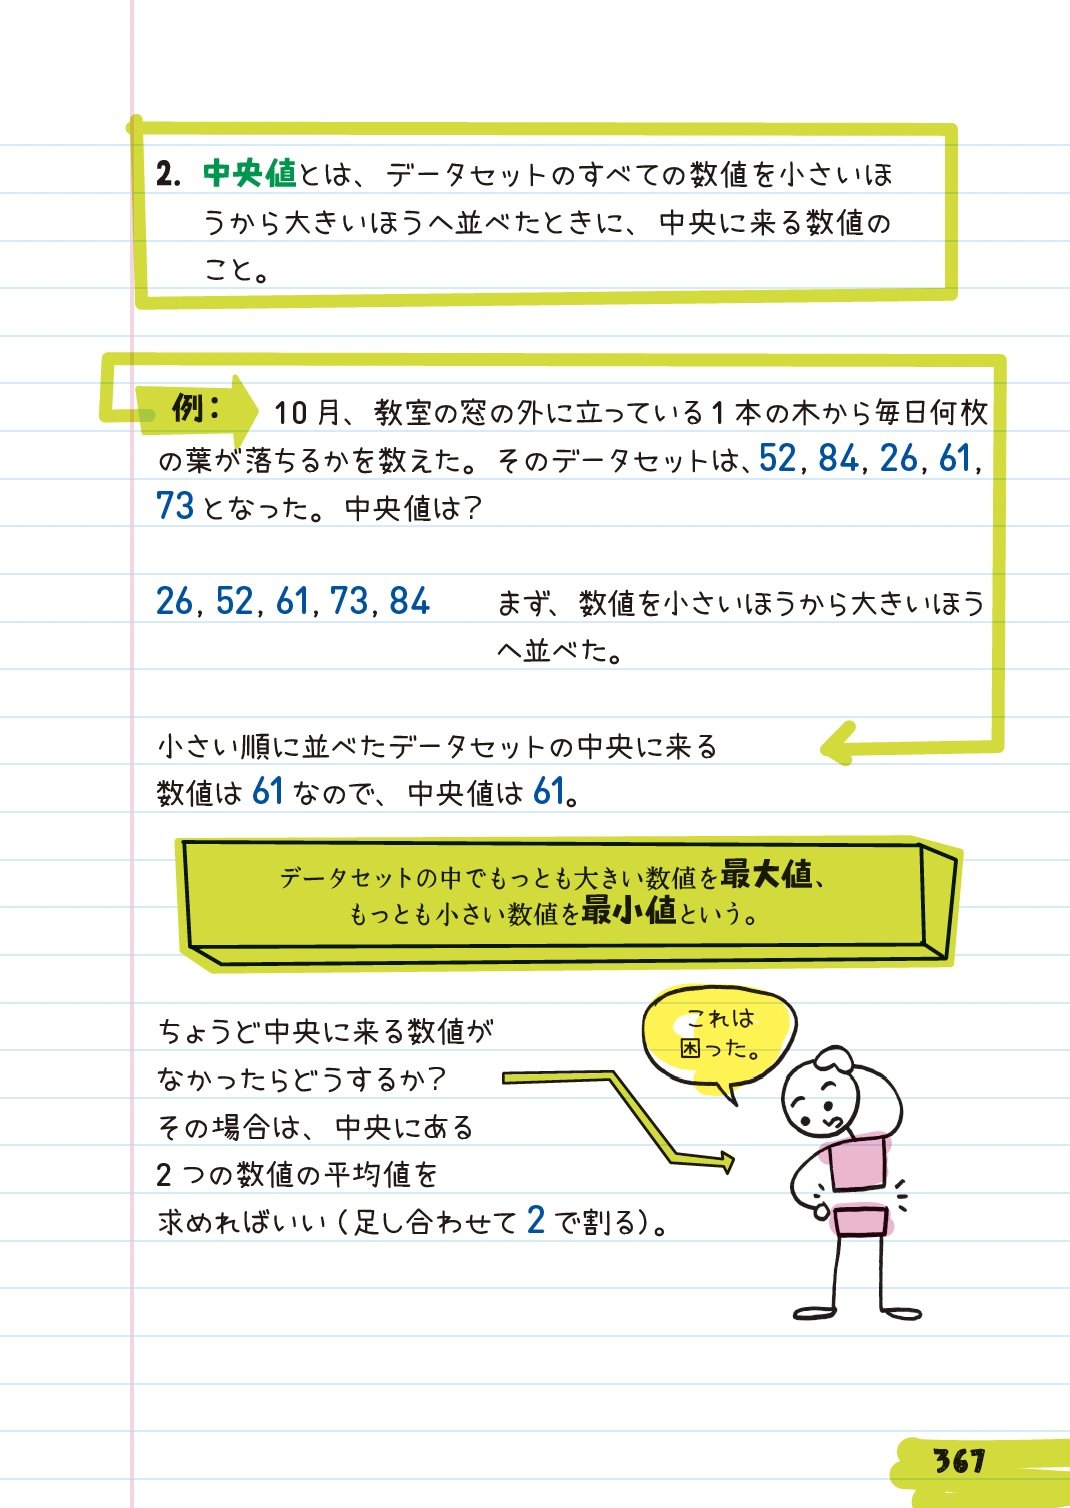 2. 中央値とは、データセットのすべての数値を小さいほ
うから大きいほうへ並べたときに、中央に来る数値の
こと。
例： 10月、教室の窓の外に立っている1本の木から毎日何枚
の葉が落ちるかを数えた。そのデータセットは、52, 84, 26, 61,
73となった。中央値は？
26, 52, 61, 73, 84
まず、数値を小さいほうから大きいほう
へ並べた。
小さい順に並べたデータセットの中央に来る
数値は61なので、中央値は61。
データセットの中でもっとも大きい数値を最大値、
もっとも小さい数値を最小値という。
ちょうど中央に来る数値が
なかったらどうするか？
その場合は、中央にある
2つの数値の平均値を
求めればいい（足し合わせて2で割る）。
これは
困った。
367